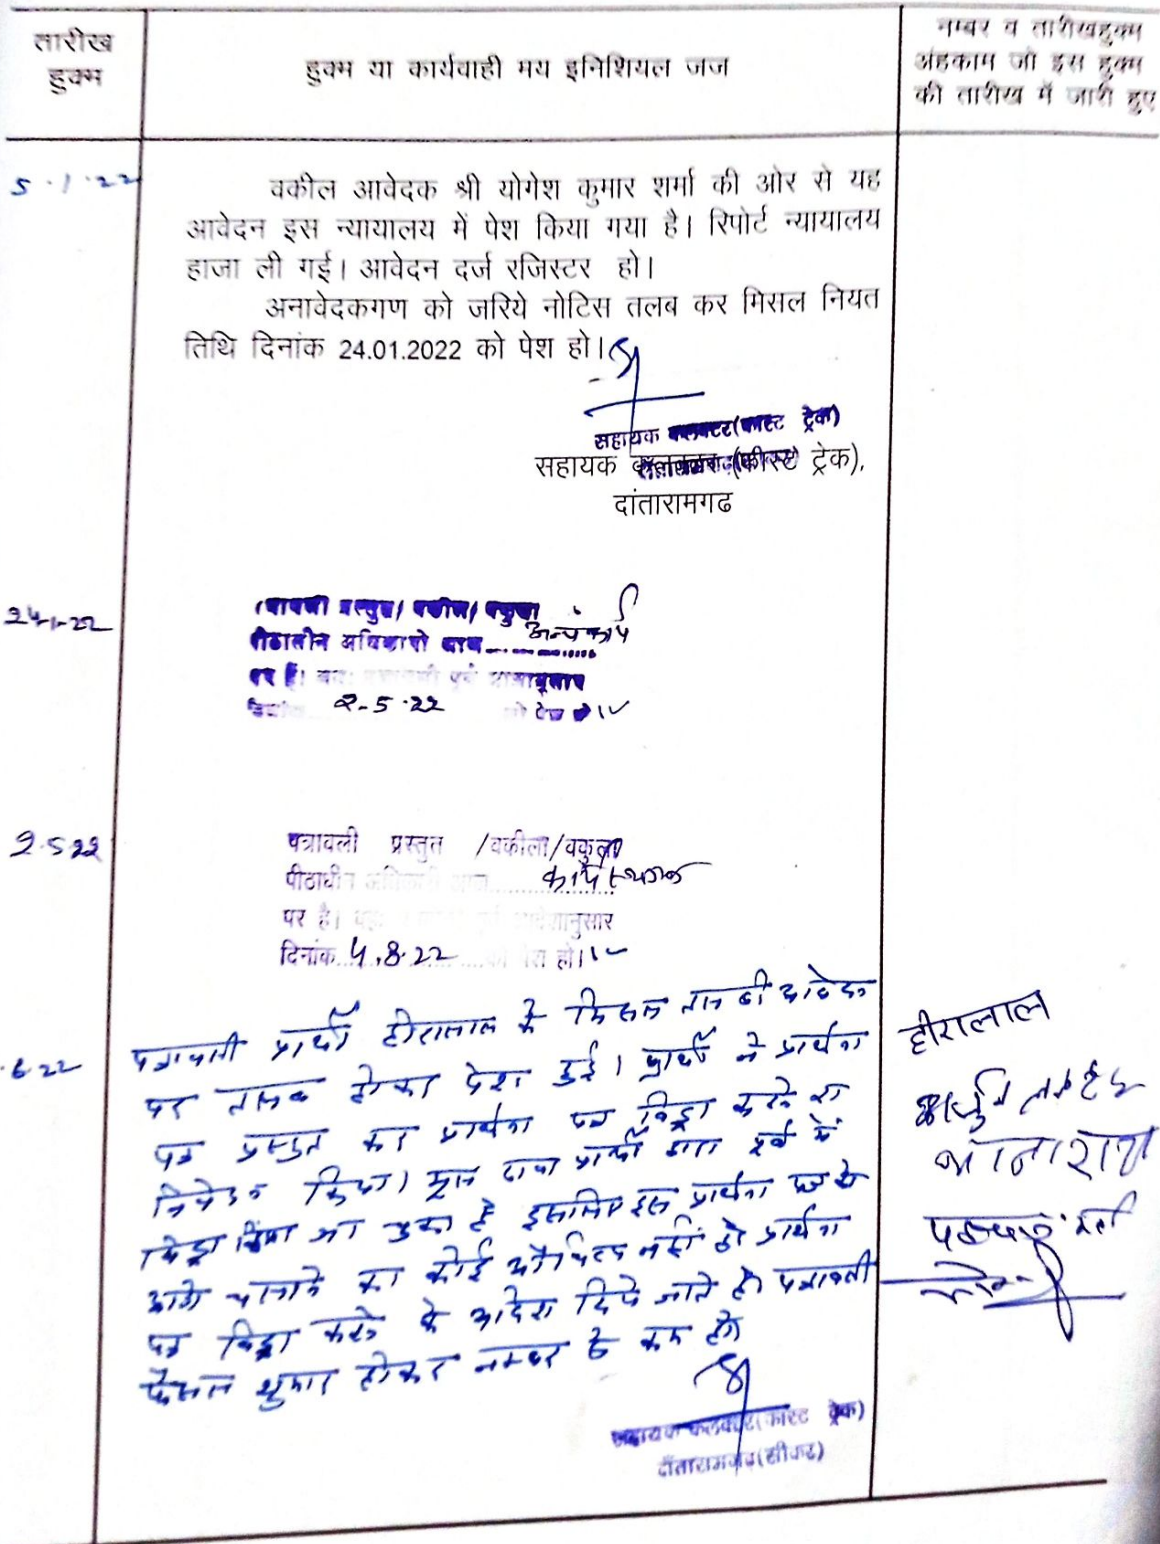 तारीख
हुक्म
हुक्म या कार्यवाही मय इनिशियल जज
नम्बर व तारीखहुक्म
अंहकाम जो इस हुक्म
की तारीख में जारी हुए
5.1.22
वकील आवेदक श्री योगेश कुमार शर्मा की ओर से यह
आवेदन इस न्यायालय में पेश किया गया है। रिपोर्ट न्यायालय
हाजा ली गई। आवेदन दर्ज रजिस्टर हो।
अनावेदकगण को जरिये नोटिस तलब कर मिसल नियत
तिथि दिनांक 24.01.2022 को पेश हो।
सहायक कलक्टर(फास्ट ट्रेक)
सहायक (फास्ट ट्रेक),
दांतारामगढ
24-1-22
पीठासीन अधिकारी अन्य कार्य
पर है।
2-5-22
2.5.22
पत्रावली प्रस्तुत /वकीला/वकुला
पीठाधीन कार्य स्थगन
पर है। आदेशानुसार
दिनांक 4.8.22 को पेश हो।
6.22
पत्रावली प्रार्थी हीरालाल के आवेदन
पर तलब होकर पेश हुई। प्रार्थी ने प्रार्थना
पत्र प्रस्तुत कर प्रार्थना पत्र विड्रा करने का
निवेदन किया। मूल दावा प्रार्थी द्वारा पूर्व में
विड्रा किया जा चुका है इसलिए इस प्रार्थना पत्र को
आगे चलाने का कोई औचित्य नहीं है। प्रार्थना
पत्र विड्रा करने के आदेश दिये जाते है। पत्रावली
फैसल शुमार होकर नम्बर से कम हो।
हीरालाल
सहायक कलक्टर(फास्ट ट्रेक)
दाँतारामगढ़(सीकर)